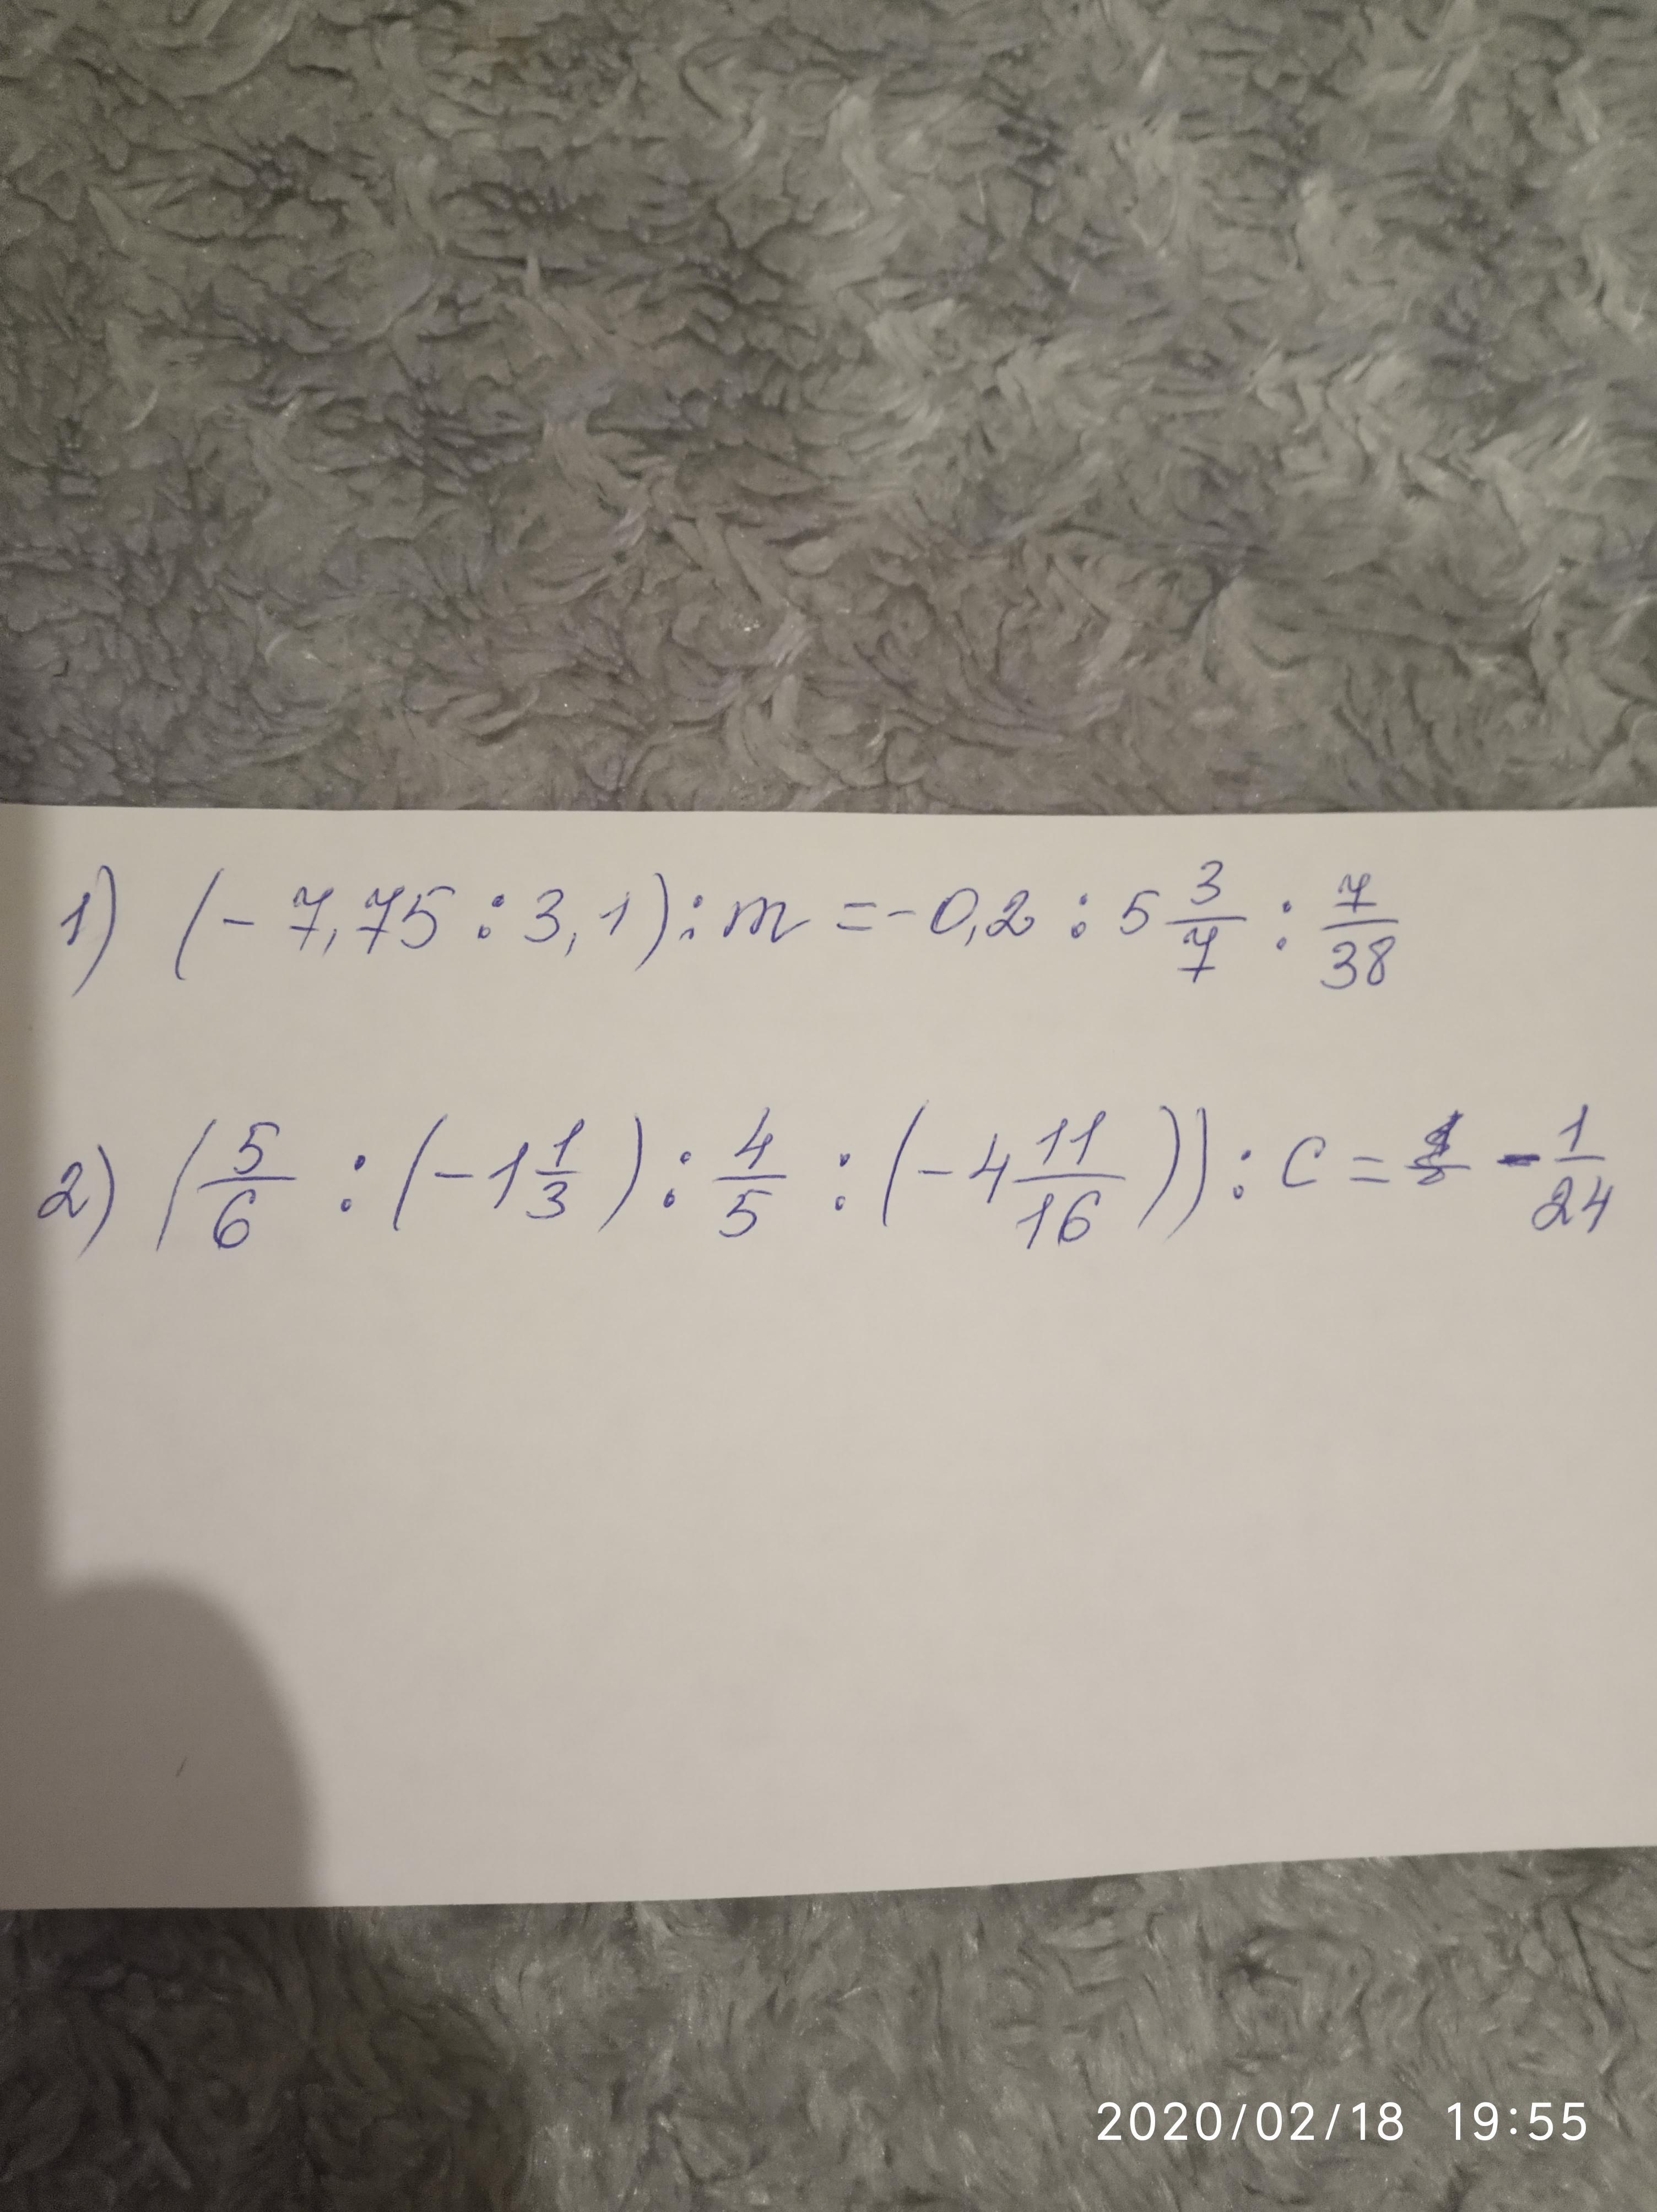 1) (-7,75 : 3,1) : m = -0,2 : 5 3/7 : 7/38
2) (5/6 : (-1 1/3) : 4/5 : (-4 11/16)) : c = - 1/24
2020/02/18 19:55